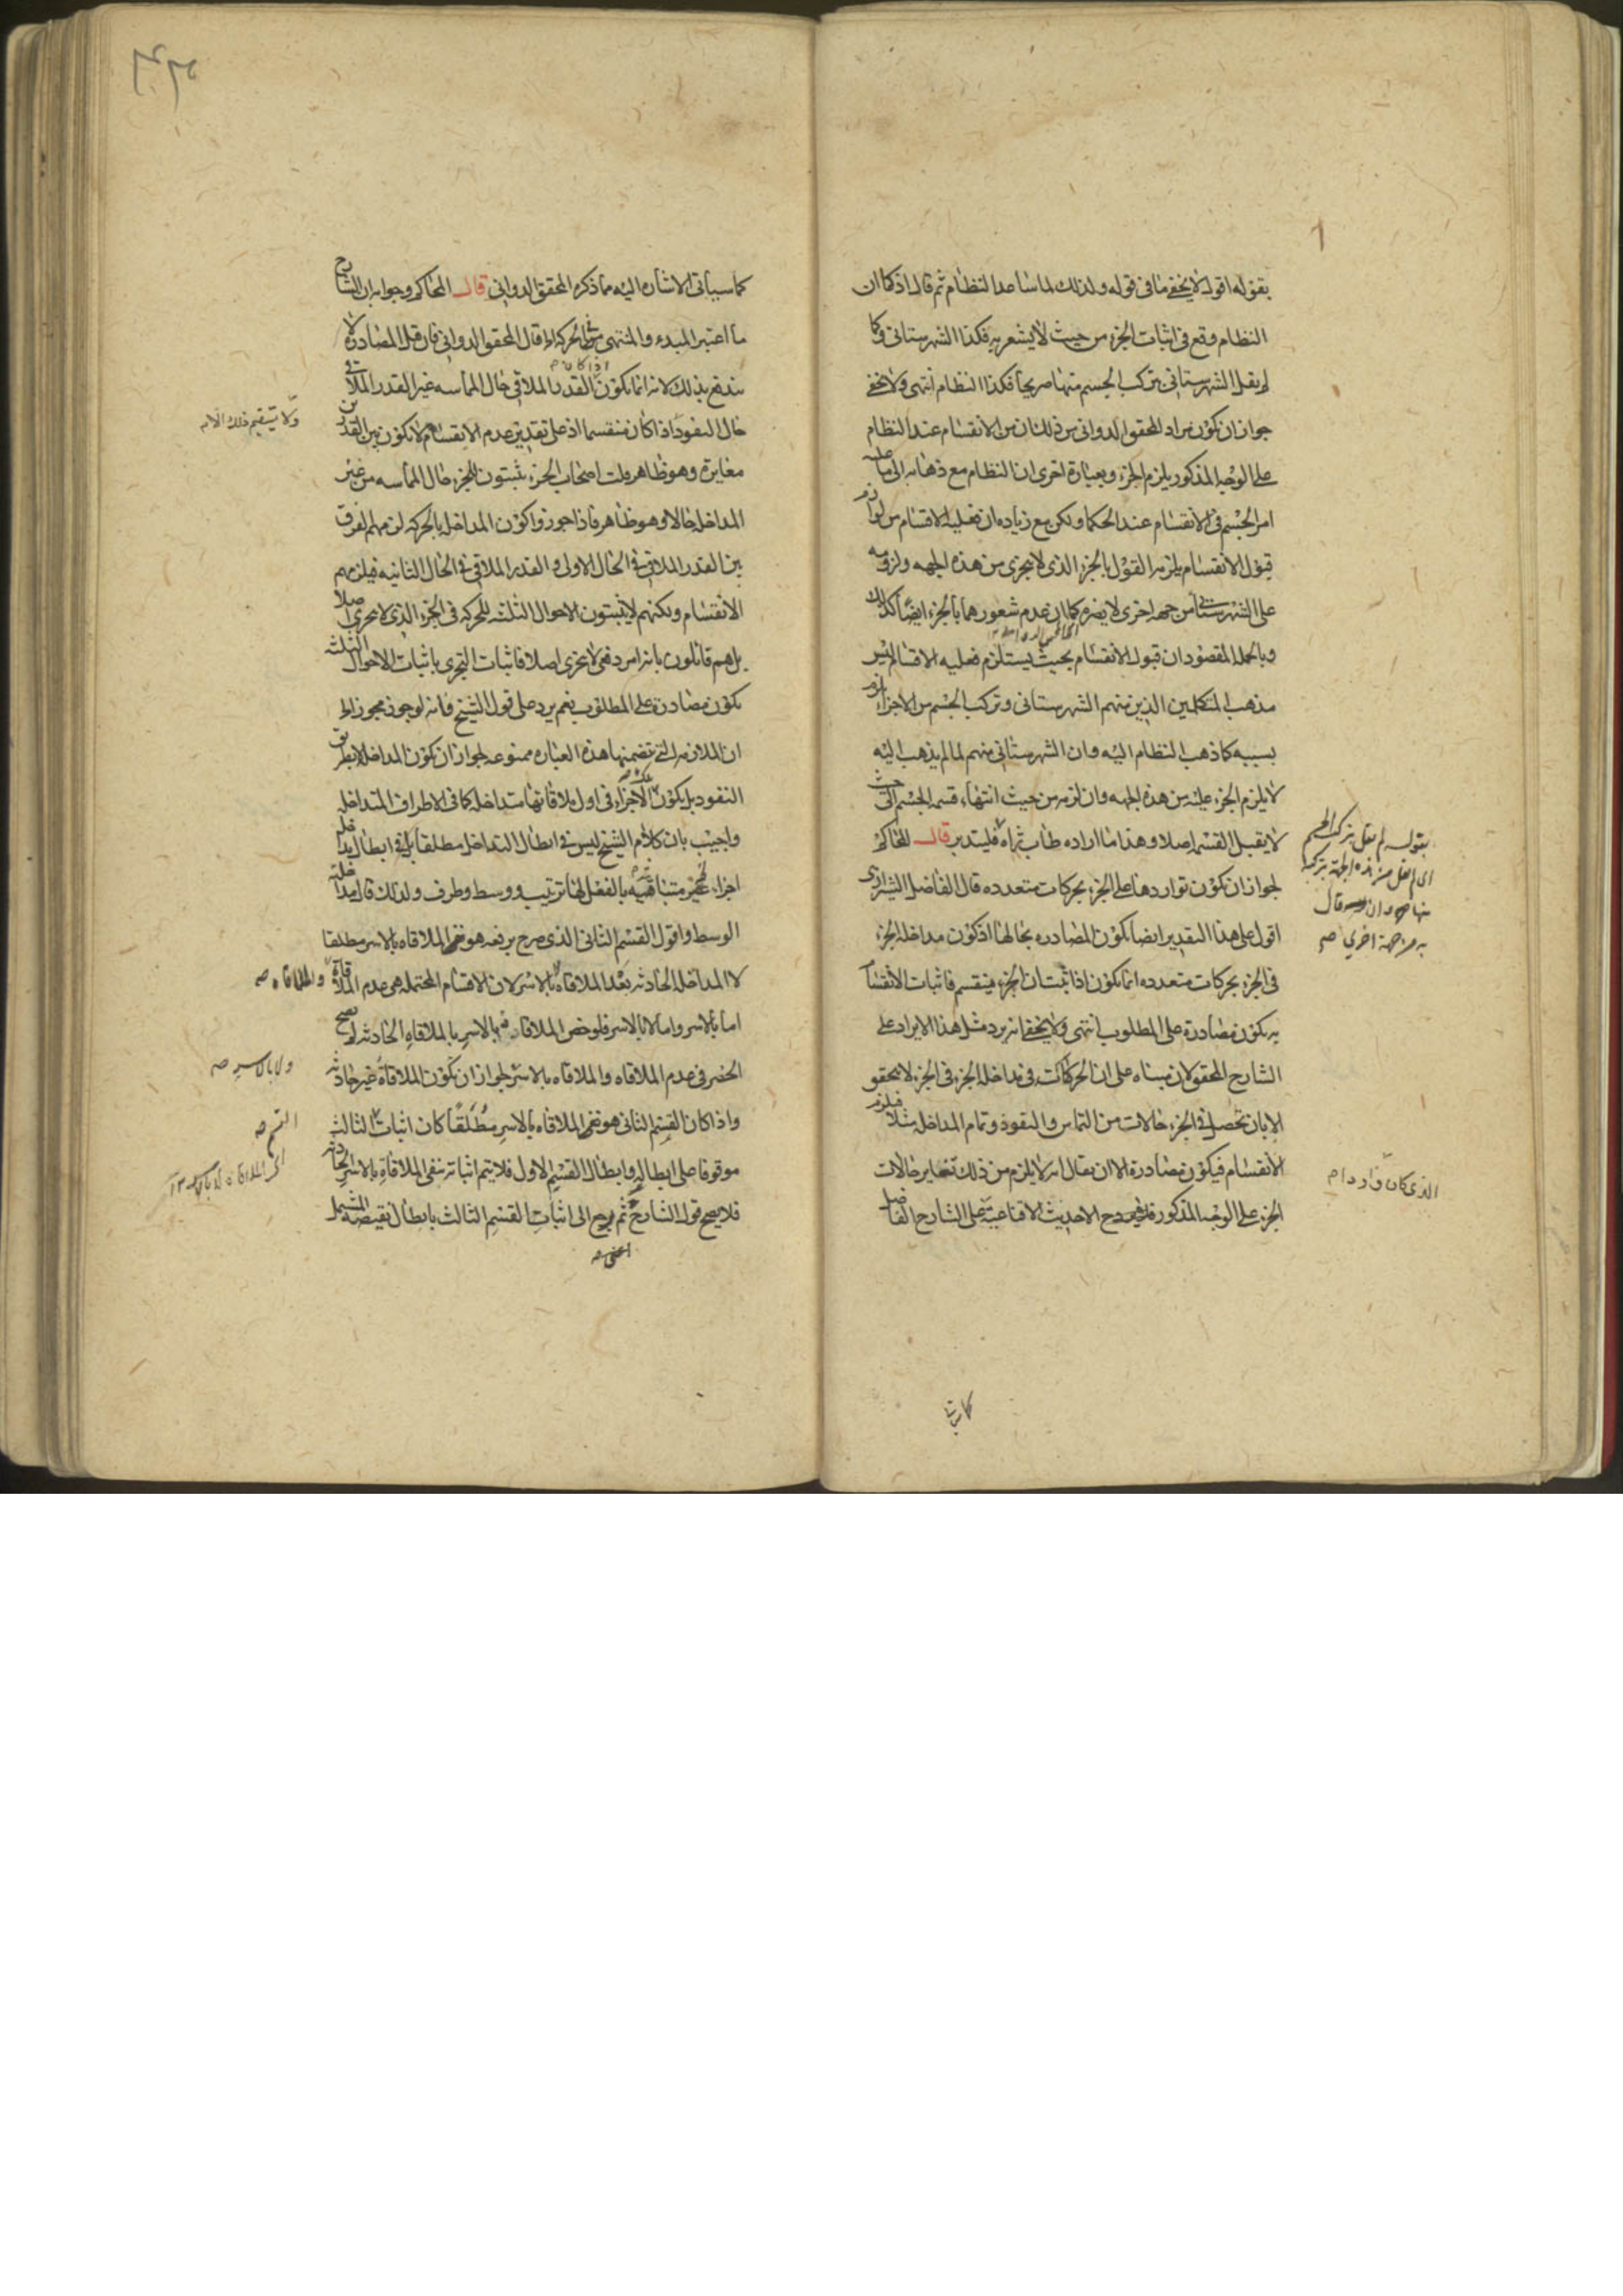 بقوله اقول لا يخفى ما فى قوله ولذلك لما شاهد النظام ثم قال اذ كما ان
النظام وقع فى اثبات الجزء من حيث لا يشعر به فكذا الشهرستانى وكما
لم يقل الشهرستانى بتركب الجسم منها صريحا فكذا النظام انتهى ولا يخفى
جواز ان يكون مراد المحقق الدوانى من ذلك ان من الانقسام عند النظام
على الوجه المذكور يلزم الجزء وبعبارة اخرى ان النظام مع ذهابه الى ما عليه
امر الجسم فى الانقسام عند الحكما ولكن مع زياده ان فعلية الاقسام من لوازم
قبول الانقسام يلزمه القول بالجزء الذى لا يتجزى من هذه الجهه ولزومه
على الشهرستانى من جهه اخرى لا يضره كما ان عدم شعورهما بالجزء ايضا كذلك
وبالجمله المقصود ان قبول الانقسام بحيث يستلزم فعليه الاقسام ليس
مذهب المتكلمين الذين منهم الشهرستانى وتركب الجسم من الاجزاء لزوم
بسببه كما ذهب النظام اليه وان الشهرستانى منهم لما لم يذهب اليه
لا يلزم الجزء عليه من هذه الجهه وان لزمه من حيث انتهاء قسمه الجسم الى حيث
لا يقبل القسمه اصلا وهذا ما اراده طاب ثراه فليتدبر قال المحاكم
لجواز ان يكون تواردها على الجزء بحركات متعدده قال الفاضل الشيرازى
اقول على هذا التقدير ايضا يكون المصادره بحالها اذ كون مداخله الجزء
فى الجزء بحركات متعدده انما يكون اذا ثبت ان الجزء منقسم فاثبات الانقسام
به يكون مصادرة على المطلوب انتهى ولا يخفى انه يرد مثل هذا الايراد على
الشارح المحقق لان مبناه على ان الحركات فى مداخله الجزء فى الجزء لا يتحقق
الا بان تحصل فى الجزء حالات من التماس والنفوذ وتمام المداخل مثلا فيلزم
الانقسام فيكون مصادرة الا ان يقال انه لا يلزم من ذلك تغاير حالات
الجزء على الوجه المذكور الاحديث الاقناعية على الشارح الفاضل
بقوله لم يقل بتركب الجسم
اى لم يقل من هذه الجهة بتركبه
منها وان قال
به من جهة اخرى صح
الذى كان
كما سيأتى الاشاره اليه مما ذكره المحقق الدوانى قال المحاكم وجوابه ان الشارح
ما اعتبر المبدء والمنتهى الحركة الخ قال المحقق الدوانى فان قيل المصادره لا
يندفع بذلك لانه انما يكون القدر الملاقى حال المماسه غير القدر الملاقى
حال النفوذ اذا كان منقسما اذ على تقدير عدم الانقسام لا يكون بين القدرين
مغايرة وهو ظاهر قلت اصحاب الجزء يثبتون للجزء حال المماسه من غير
المداخله حالا وهو ظاهر فاذا جوزوا كون المداخله بالحركه لزمهم الفرق
بين القدر الملاقى فى الحال الاولى والقدر الملاقى فى الحال الثانيه فيلزمهم
الانقسام ولكنهم لا يثبتون الاحوال الثلثه للحركه فى الجزء الذى لا يتجزى اصلا
بل هم قائلون بانه امر دفعى لا يتجزى اصلا فاثبات التجزى باثبات الاحوال الثلثه
يكون مصادرة على المطلوب نعم يرد على قول الشيخ فانه لو جوز مجوز الخ
ان الملازمه التى تضمنها هذه العباره ممنوعه لجواز ان يكون المداخله لا بطريق
النفوذ بل يكون الاجزاء فى اول ملاقاتها متداخله كما فى الاطراف المتداخله
واجيب بان كلام الشيخ ليس فى ابطال التداخل مطلقا بل فى ابطال مداخله
اجزاء غير متناهيه بالفعل لها ترتيب ووسط وطرف ولذلك قال مداخله
الوسط واقول القسم الثانى الذى صرح برفعه هو نفى الملاقاه بالاسر مطلقا
لا المداخله الحادثه بعد الملاقاه لا بالاسر لان الاقسام المحتمله هى عدم الملاقاة والملاقاه صح
اما بالاسر واما لا بالاسر فلو خص الملاقاه بالاسر بالملاقاه الحادثه لم يصح
الحصر فى عدم الملاقاه والملاقاه بالاسر لجواز ان يكون الملاقاة غير حادثه
واذا كان القسم الثانى هو نفى الملاقاه بالاسر مطلقا كان اثبات الثالث
موقوفا على ابطاله وابطال القسم الاول فلا يتم اثباته بنفى الملاقاة بالاسر الحادثه
فلا يصح قول الشارح ثم رجع الى اثبات القسم الثالث بابطال نقيضه المشتمل
ولا يستقيم ذلك الا
ولا بالاسر صح
القسم صح
اعنى